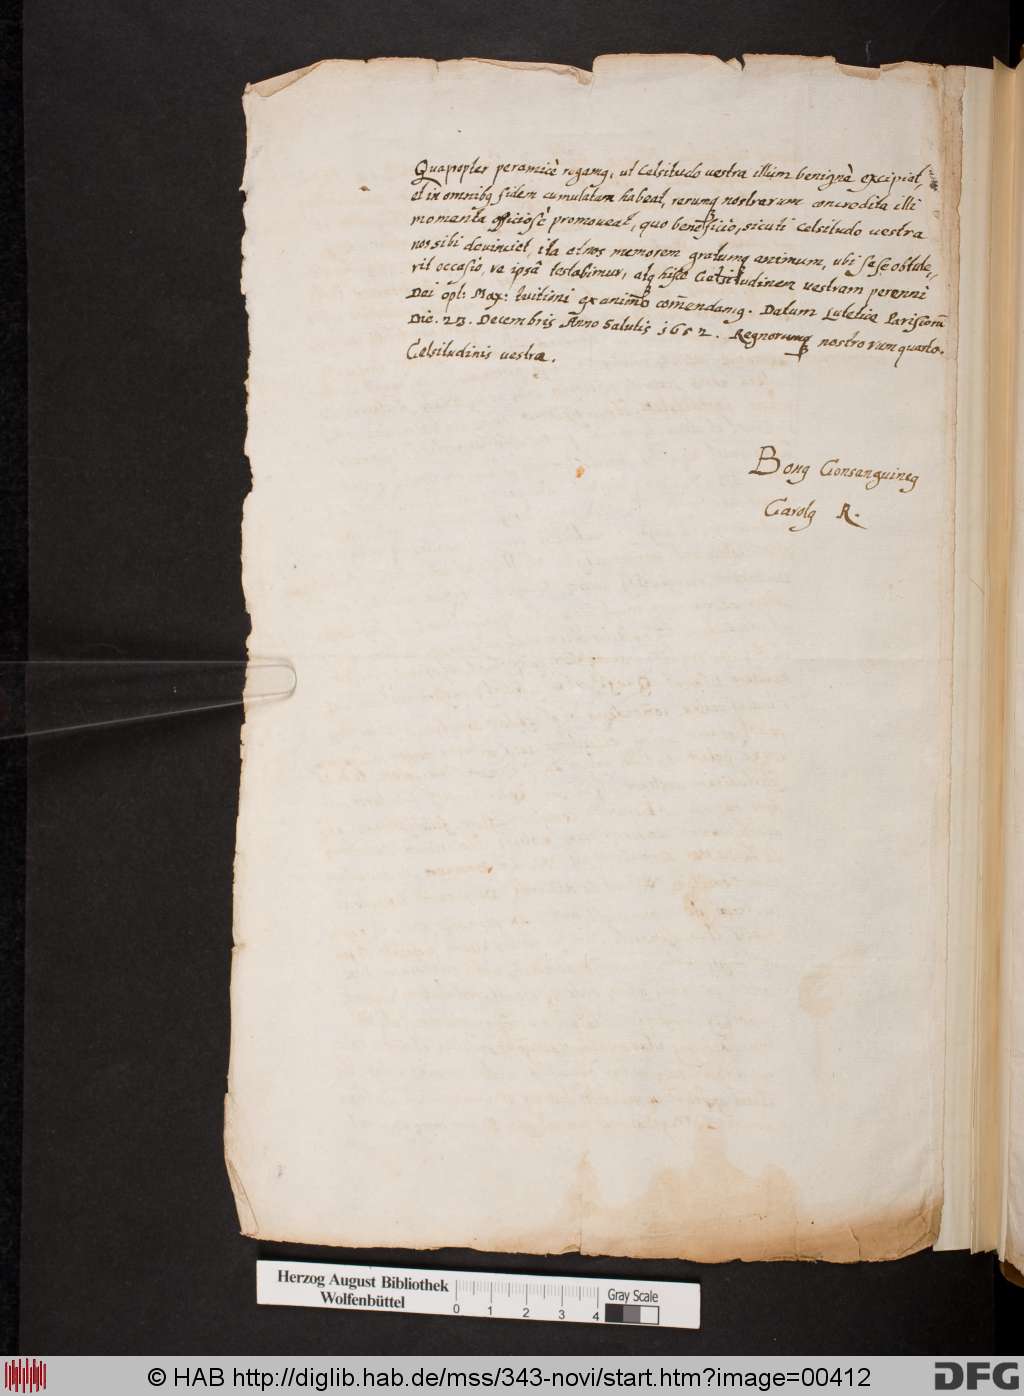 Quapropter peramicè rogamq, ut Celsitudo vestra illum benignè excipiat,
et in omnibq fidem cumulatam habeat, rerumq nostrarum concredita illi
momenta officiosè promoveat, quo beneficio, sicuti Celsitudo vestra
nos sibi devinciet, ita et nos memorem gratumq animum, ubi sese obtule,,
rit occasio, re ipsâ testabimur, atq hisce Celsitudinem vestram perenni
Dei opt: Max: tuitioni ex animo com̃endamq. Datum Lutetiæ Parisiorũ
Die. 23. Decembris Anno Salutis 1652. Regnorumq nostrorum quarto.
Celsitudinis vestræ.
Bonq Consanguineq
Carolq R.
Herzog August Bibliothek
Wolfenbüttel
0 1 2 3 4
Gray Scale
© HAB http://diglib.hab.de/mss/343-novi/start.htm?image=00412
DFG